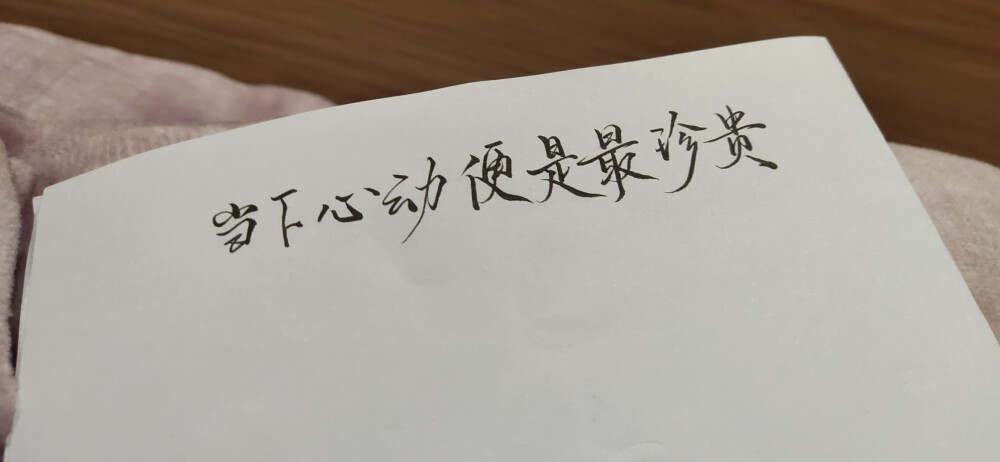 当下心动便是最珍贵